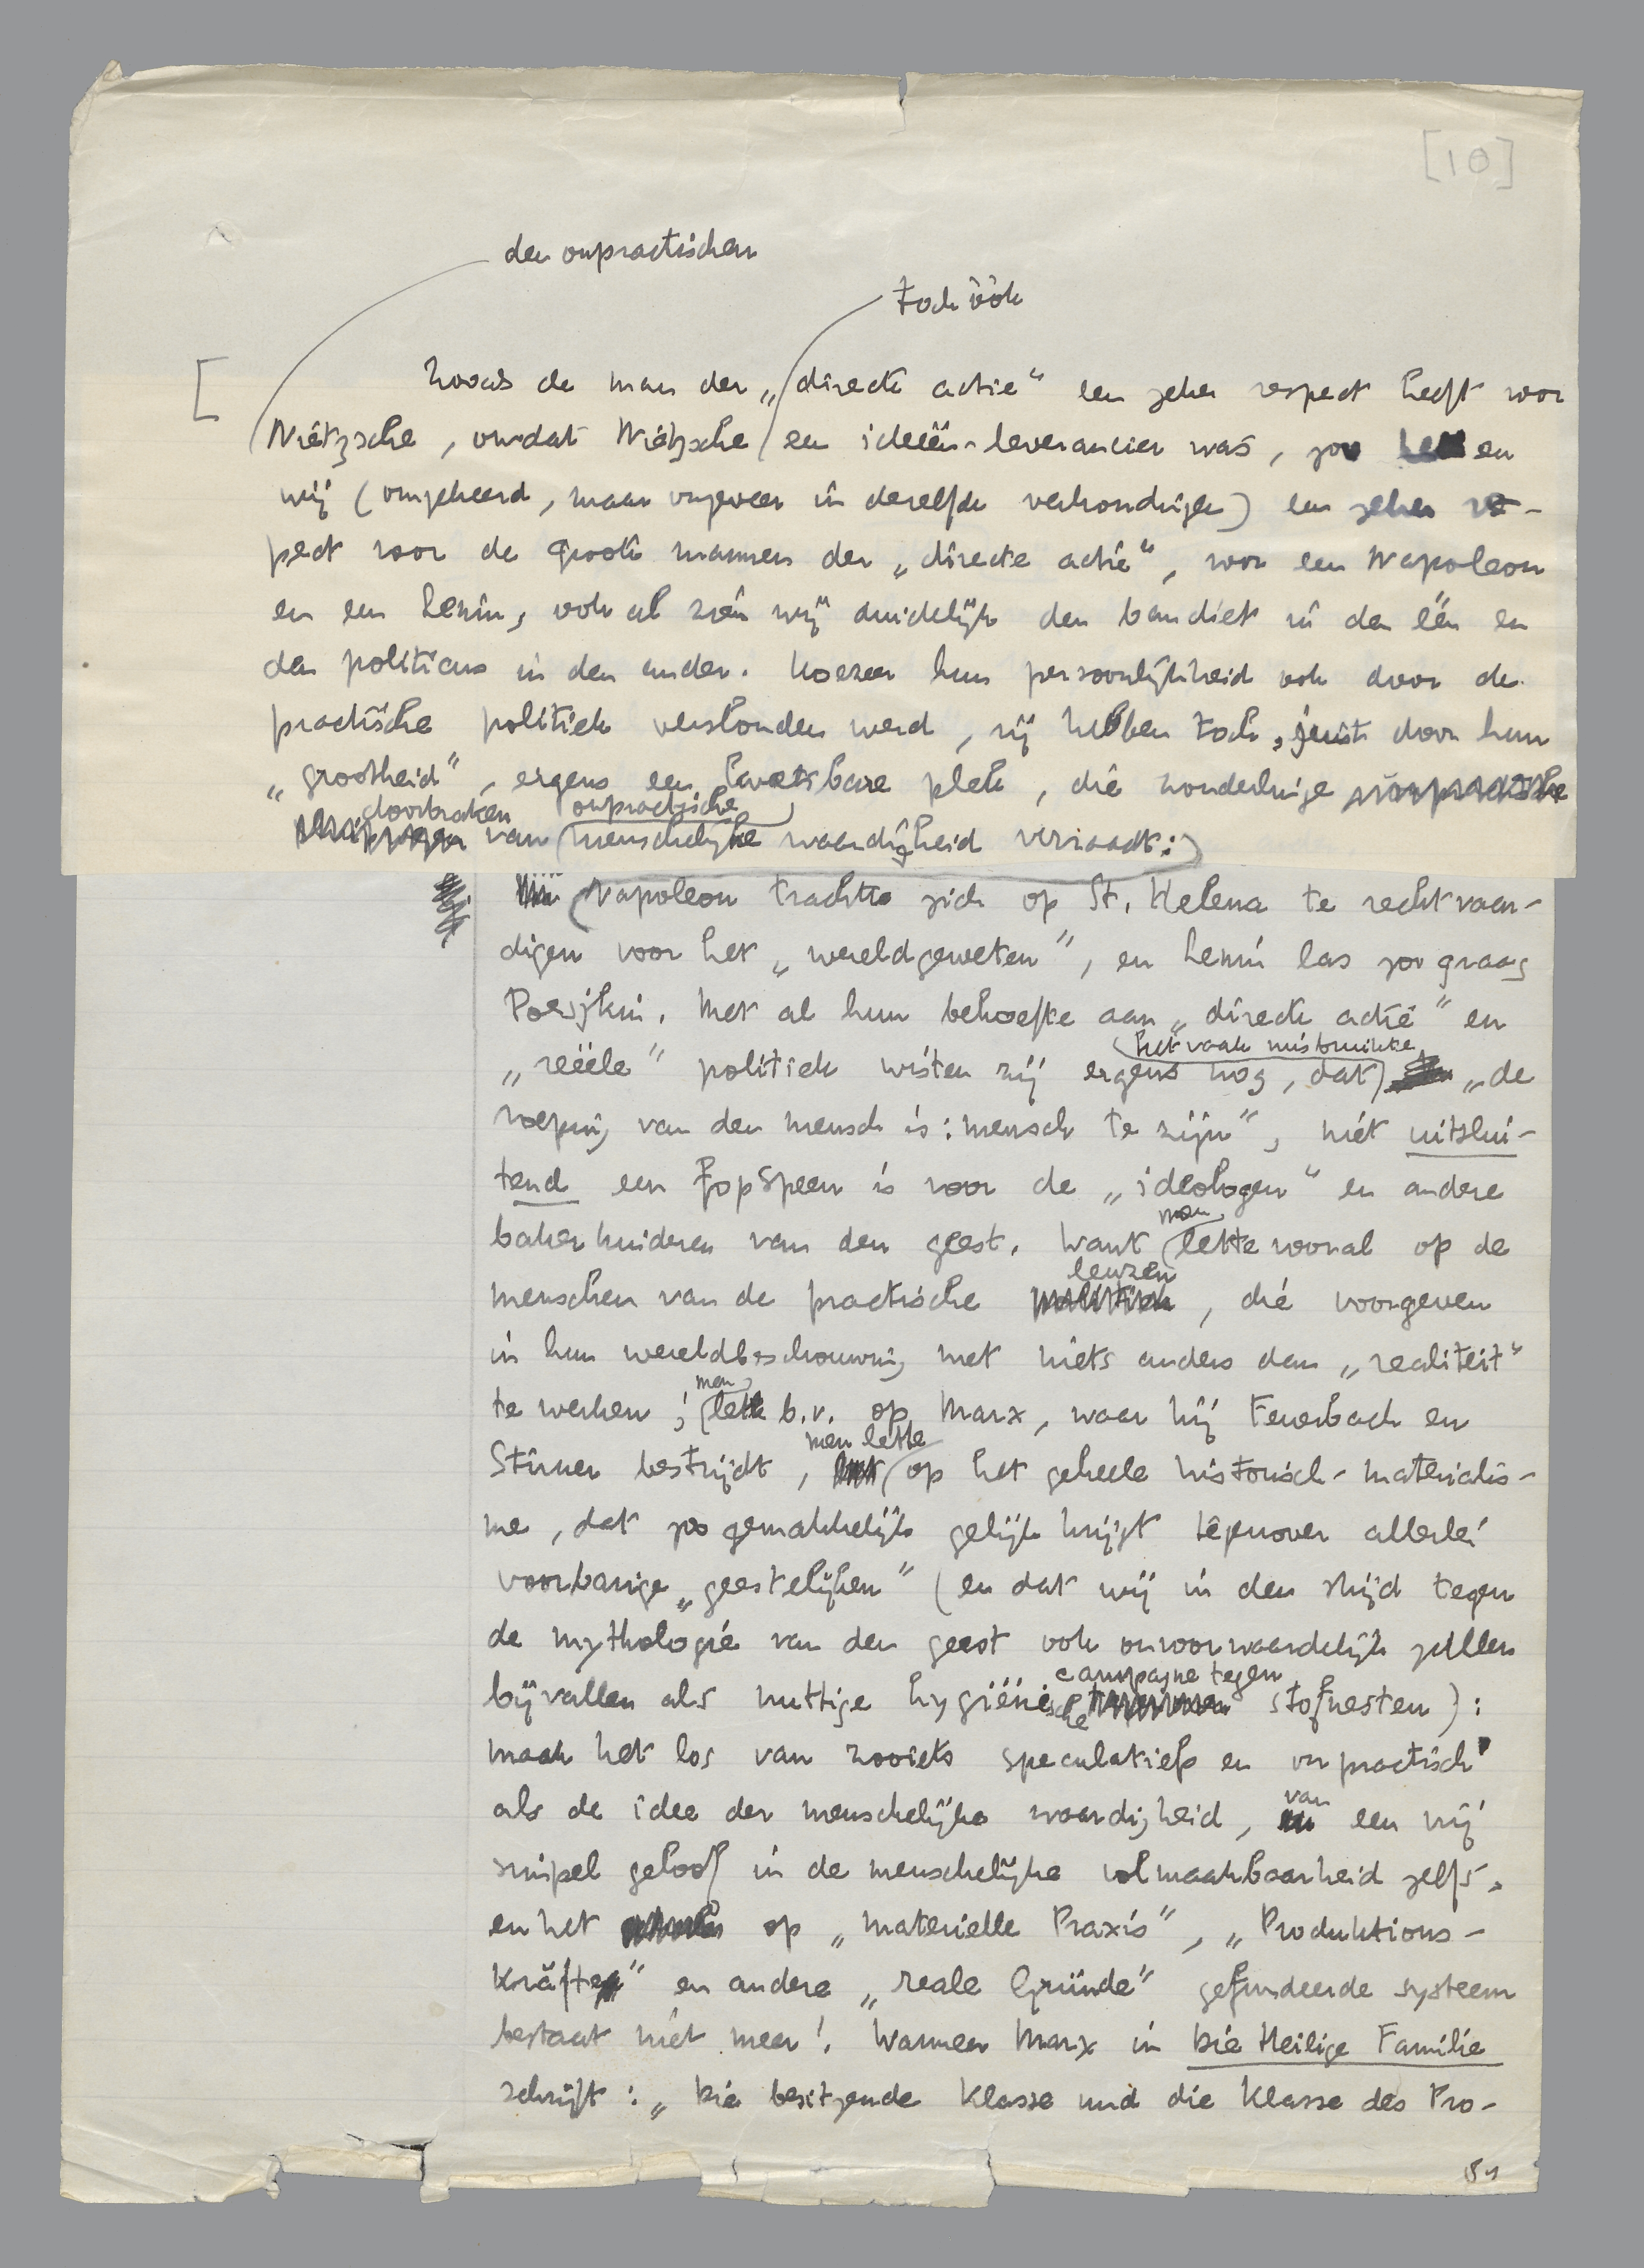 [10]
den onpractischen
toch óók
[ Zooals de man der „directe actie" een zeker respect heeft voor
Nietzsche, omdat Nietzsche een ideeën-leverancier was, zoo hebben
wij (omgekeerd, maar ongeveer in dezelfde verhoudingen) een zeker res-
pect voor de groote mannen der „directe actie", voor een Napoleon
en een Lenin, ook al zien wij duidelijk den bandiet in den één en
den politicus in den ander. Hoezeer hun persoonlijkheid ook door de
practische politiek verslonden werd, zij hebben toch, juist door hun
„grootheid", ergens een kwetsbare plek, die zonderlinge
doorbraken onpractische
van menschelijke waardigheid verraadt:
Napoleon trachtte zich op St. Helena te rechtvaar-
digen voor het „wereldgeweten", en Lenin las zoo graag
Poesjkin. Met al hun behoefte aan „directe actie" en
het vaak misbruikte
„reëele" politiek wisten zij ergens nog, dat „de
roeping van den mensch is: mensch te zijn", niét uitslui-
tend een fopspeen is voor de „ideologen" en andere
bakerkinderen van den geest. Want
men
lette vooral op de
leuzen
menschen van de practische , die voorgeven
in hun wereldbeschouwing met niets anders dan „realiteit"
men
te werken; lette b.v. op Marx, waar hij Feuerbach en
men lette
Stirner bestrijdt, op het geheele historisch-materialis-
me, dat zoo gemakkelijk gelijk krijgt tegenover allerlei
voorbarige „geestelijken" (en dat wij in den strijd tegen
de mythologie van den geest ook onvoorwaardelijk zullen
campagne tegen
bijvallen als nuttige hygiënische stofnesten):
maak het los van zooiets speculatiefs en onpractisch
van
als de idee der menschelijke waardigheid, een vrij
simpel geloof in de menschelijke volmaakbaarheid zelfs,
en het op „materielle Praxis", „Produktions-
kräfte" en andere „reale Gründe" gefundeerde systeem
bestaat niet meer! Wanneer Marx in Die Heilige Familie
schrijft: „Die besitzende Klasse und die Klasse des Pro-